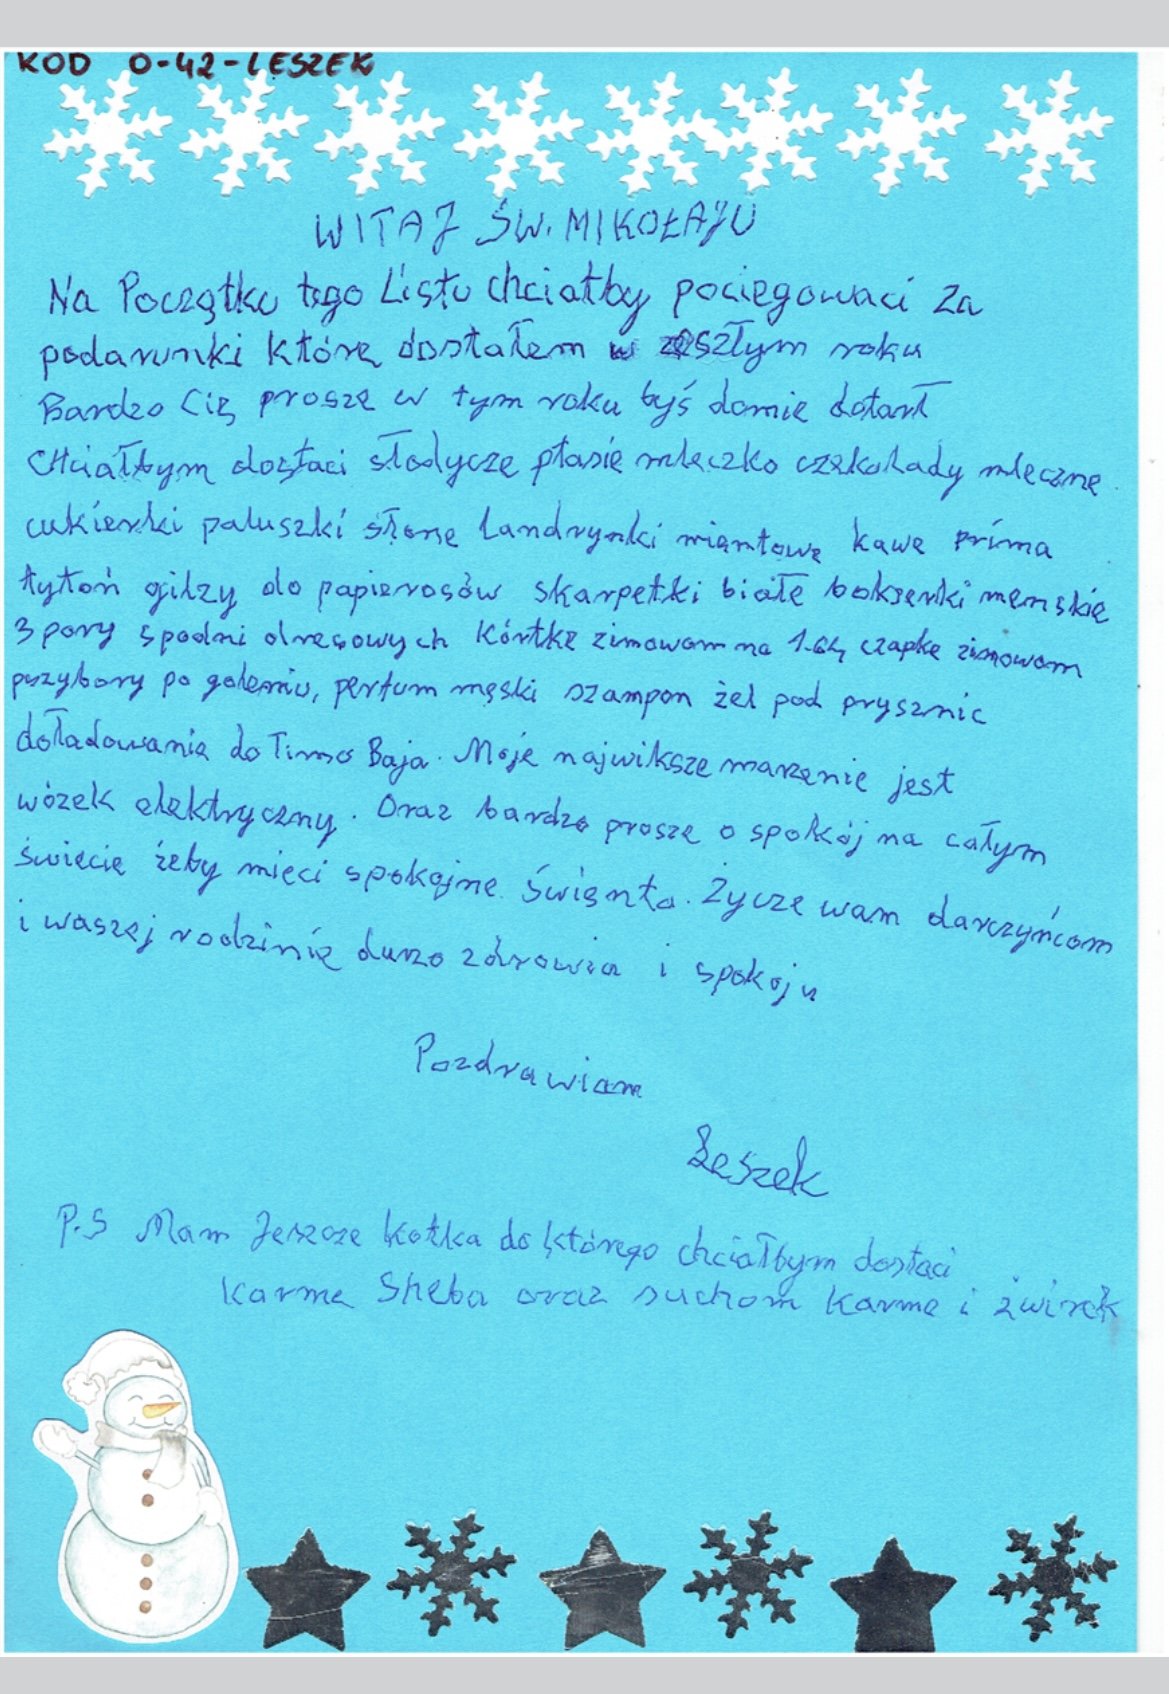 KOD O-42-LESZEK
WITAJ ŚW. MIKOŁAJU
Na Początku tego Listu chciałby pocięgowaci za
podarunki które dostałem w zeszłym roku
Bardzo Cię proszę w tym roku byś domie dotarł
CHciałbym dostaci słodycze ptasie mleczko czekolady mleczne
cukierki paluszki słone Landrynki miantowe kawe prima
tytoń gilzy do papierosów skarpetki białe bokserki menskie
3 pary spodni dresowych Kórtke zimowom na 1.64, czapke zimowom
przybory po goleniu, perfum męski szampon żel pod prysznic
doładowanie do Timo Baja. Moje najwiksze marzenie jest
wózek elektryczny. Oraz bardzo prosze o spokój na całym
świecie żeby mieci spokojne Świenta. Życze wam darczyńcom
i waszej rodzinie durzo zdrowia i spokoju
Pozdrawiam
Leszek
P.S Mam Jeszcze kotka do którego chciałbym dostaci
Karme Sheba oraz suchom karme i żwirek